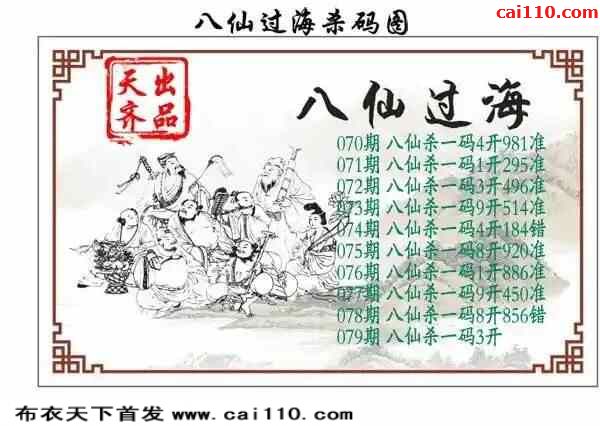 八仙过海杀码图
cai110.com
天齐出品
八仙过海
070期 八仙杀一码4开981准
071期 八仙杀一码1开295准
072期 八仙杀一码3开496准
073期 八仙杀一码9开514准
074期 八仙杀一码4开184错
075期 八仙杀一码8开920准
076期 八仙杀一码1开886准
077期 八仙杀一码9开450准
078期 八仙杀一码8开856错
079期 八仙杀一码3开
布衣天下首发 www.cai110.com